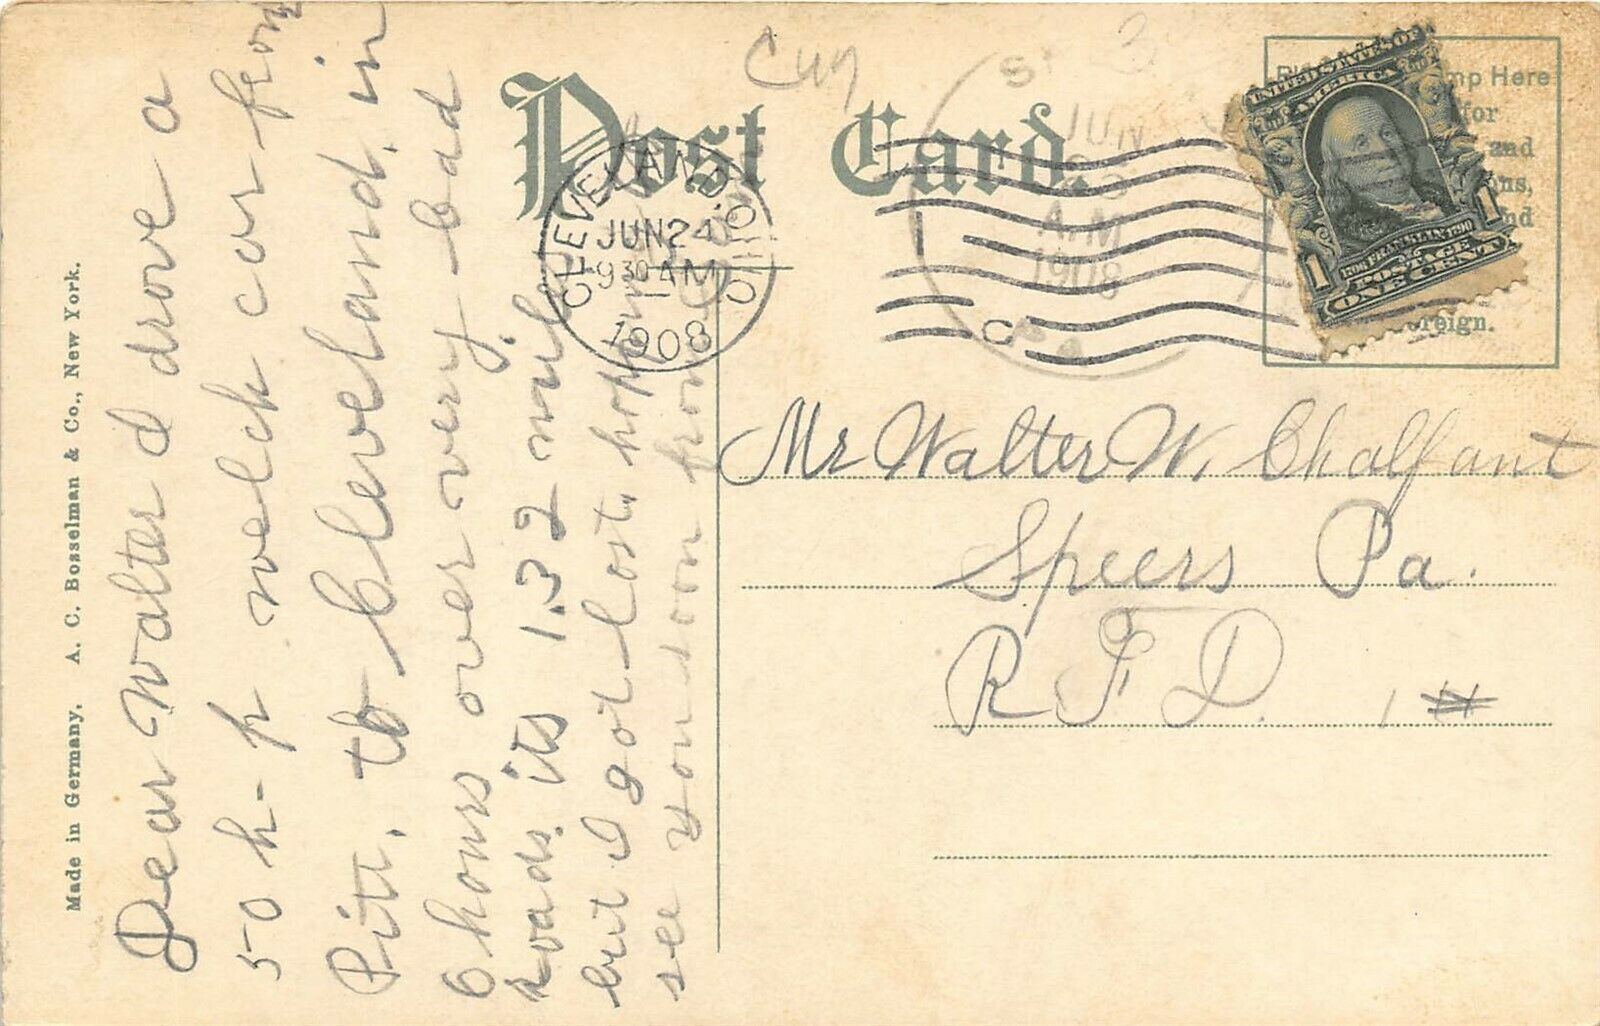 Made in Germany. A. C. Bosselman & Co., New York.
Dear Walter I drove a
50 h-p welch car from
Pitt. to Cleveland, in
6 hours over very bad
roads. its 132 miles
but I got lost, hope
see you soon from
Post Card.
CLEVELAND, O.
JUN 24
9 30 AM
1908
JUN
23
AM
1908
PA
C
Here
for
and
Foreign.
UNITED STATES OF
AMERICA
1706 FRANKLIN 1790
POSTAGE
1 ONE CENT 1
Mr Walter W. Chalfant
Speers Pa.
R F D. 1